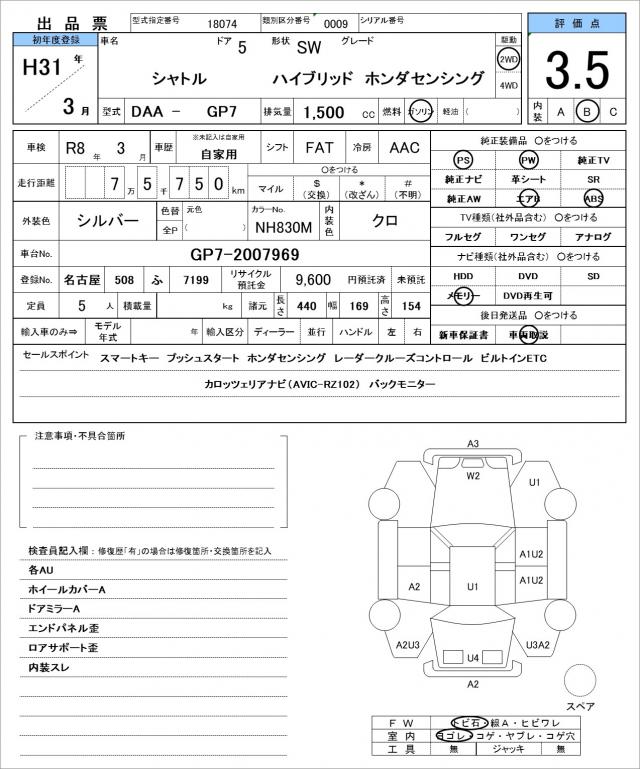 出品票
型式指定番号 18074 類別区分番号 0009 シリアル番号
評価点
初年度登録 車名 ドア 5 形状 SW グレード 駆動
H31 年 シャトル ハイブリッド ホンダセンシング 2WD 3.5
4WD
3 月 型式 DAA － GP7 排気量 1,500 cc 燃料 ガソリン 軽油 ( ) 内装 A B C
車検 R8 年 3 月 車歴 ※未記入は自家用 自家用 シフト FAT 冷房 AAC
純正装備品 〇をつける
PS PW 純正TV
走行距離 7 万 5 千 7 5 0 km 〇をつける
マイル $ (交換) * (改ざん) # (不明)
純正ナビ 革シート SR
純正AW エアB ABS
外装色 シルバー 色替 元色 カラーNo. 内装色 クロ
全P ( ) NH830M
TV種類(社外品含む) 〇をつける
フルセグ ワンセグ アナログ
車台No. GP7-2007969
ナビ種類(社外品含む) 〇をつける
登録No. 名古屋 508 ふ 7199 リサイクル預託金 9,600 円預託済 未預託
HDD DVD SD
定員 5 人 積載量 kg 諸元 長さ 440 幅 169 高さ 154
メモリー DVD再生可
後日発送品 〇をつける
輸入車のみ⇒ モデル年式 年 輸入区分 ディーラー 並行 ハンドル 左 右
新車保証書 車両取説
セールスポイント スマートキー プッシュスタート ホンダセンシング レーダークルーズコントロール ビルトインETC
カロッツェリアナビ(AVIC-RZ102) バックモニター
注意事項・不具合箇所
検査員記入欄：修復歴「有」の場合は修復箇所・交換箇所を記入
各AU
ホイールカバーA
ドアミラーA
エンドパネル歪
ロアサポート歪
内装スレ
A3
W2
U1
A1U2
A2 U1 A1U2
A2U3 U3A2
U4
A2
スペア
FW トビ石・線A・ヒビワレ
室内 ヨゴレ・コゲ・ヤブレ・コゲ穴
工具 無 ジャッキ 無